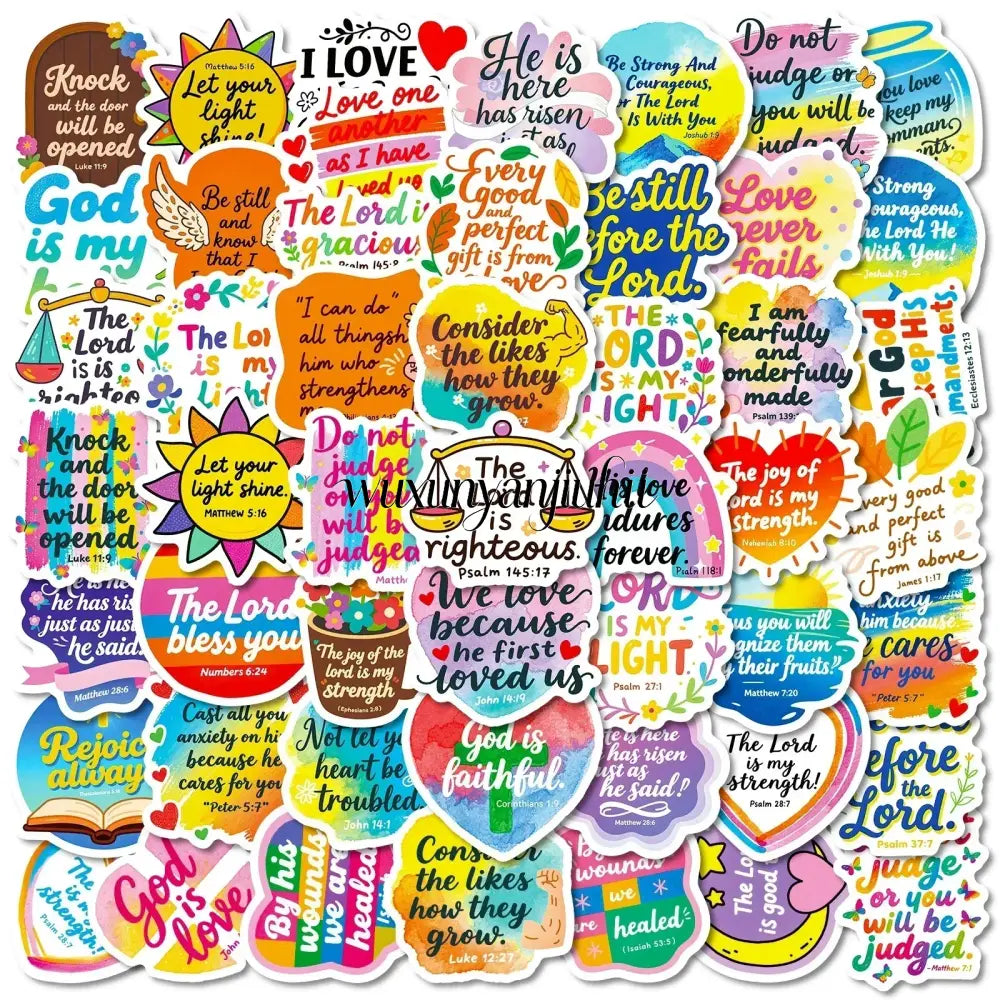 Knock
and the door
will be
opened
Luke 11:9
Matthew 5:16
Let your
light
shine!
I LOVE
Love one
another
as I have
loved
He is
here
has risen
just as
Be Strong And
Courageous,
The Lord
Is With You
Joshub 1:9
Do not
judge or
you will be
judged.
you love
keep my
God
is my
Be still
and
know
that I
The Lord is
gracious
Psalm 145:8
Every
good
and
perfect
gift is from
Be still
before the
Lord.
Love
never
fails
Strong
Courageous,
the Lord He
With You!
Joshub 1:9
The
Lord
is is
The Lor
is my
"I can do"
all thingsh
him who
strengthens
Consider
the likes
how they
grow.
THE
LORD
IS MY
LIGHT
I am
fearfully
and
wonderfully
made
Psalm 139:
God
Keep His
Ecclesiastes 12:13
Knock
and
the door
will be
opened
Luke 11:9
Let your
light shine.
MATTHEW 5:16
Do not
judge
will b
judgea
Matth
wuxunyanjiu
The
Lord
is
righteous.
Psalm 145:17
love
endures
forever.
Psalm 118:1
The joy of
Lord is my
strength.
Nehemiah 8:10
every good
and perfect
gift is
from above
James 1:17
he has ris
just as just
he said.
Matthew 28:6
The Lord
bless you
Numbers 6:24
The joy of the
lord is my
strength
(Ephesians 2:8)
We love
because
he first
loved us
John 14:19
LORD
IS MY
LIGHT.
Psalm 27:1
us you will
their fruits."
Matthew 7:20
anxiety
him because
cares
for you
"Peter 5:7"
Rejoic
alway
Cast all you
anxiety on hi
because he
cares for you
"Peter 5:7"
Not let yo
heart be
troubled
John 14:1
God is
faithful.
Corinthians 1:9
He is here
has risen
just as
he said!
Matthew 28:6
The Lord
is my
strength!
Psalm 28:7
before
the
Lord.
Psalm 37:7
The
is my
strength!
Psalm 28:7
God
is
love
John
By his
wounds
we are
healed
Consider
the likes
how they
grow.
Luke 12:27
By
wounds
we
are healed
(Isaiah 53:5)
The Lo
is good
judge
or you
will be
judged.
Matthew 7:1